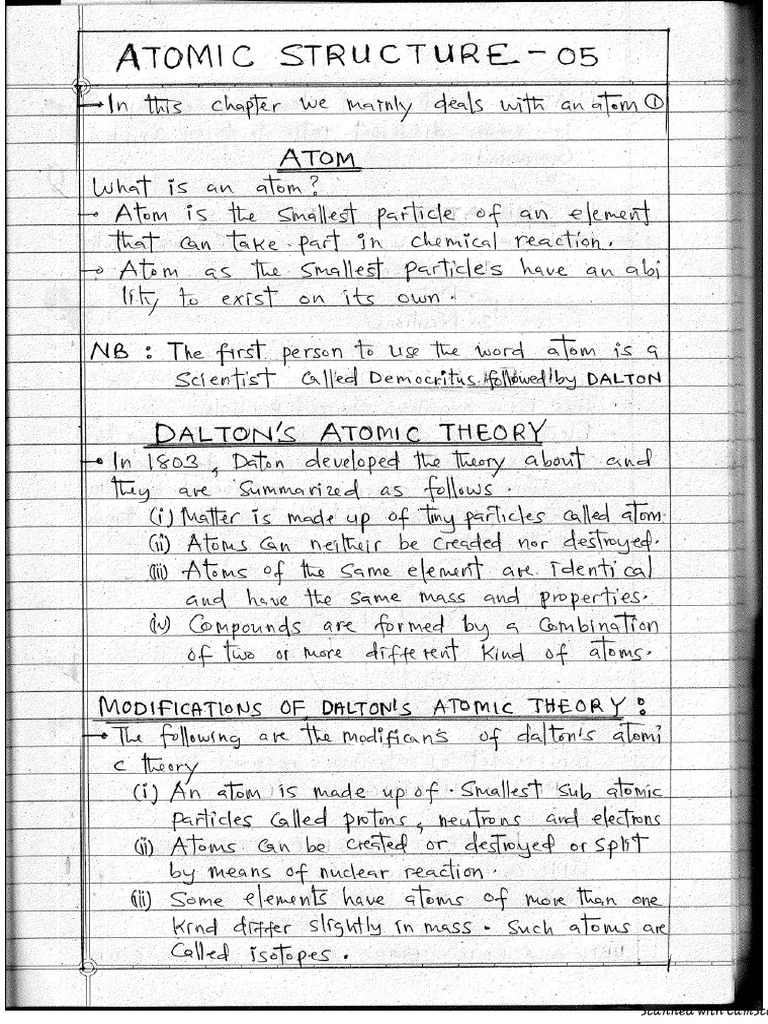 ATOMIC STRUCTURE - 05
→ In this chapter we mainly deals with an atom ①
ATOM
What is an atom?
→ Atom is the smallest particle of an element
that can take part in chemical reaction.
→ Atom as the smallest particles have an abi
lity to exist on its own.
NB : The first person to use the word atom is a
Scientist called Democritus followed by DALTON
DALTON'S ATOMIC THEORY
→ In 1803, Daton developed the theory about and
they are summarized as follows.
(i) Matter is made up of tiny particles called atom.
(ii) Atoms can neitheir be creaded nor destroyed.
(iii) Atoms of the same element are identical
and have the same mass and properties.
(iv) Compounds are formed by a combination
of two or more different kind of atoms.
MODIFICATIONS OF DALTON'S ATOMIC THEORY :
→ The following are the modifican's of dalton's atomi
c theory
(i) An atom is made up of smallest sub atomic
particles called protons, neutrons and electrons
(ii) Atoms can be created or destroyed or split
by means of nuclear reaction.
(iii) Some elements have atoms of more than one
kind differ slightly in mass. Such atoms are
called isotopes.